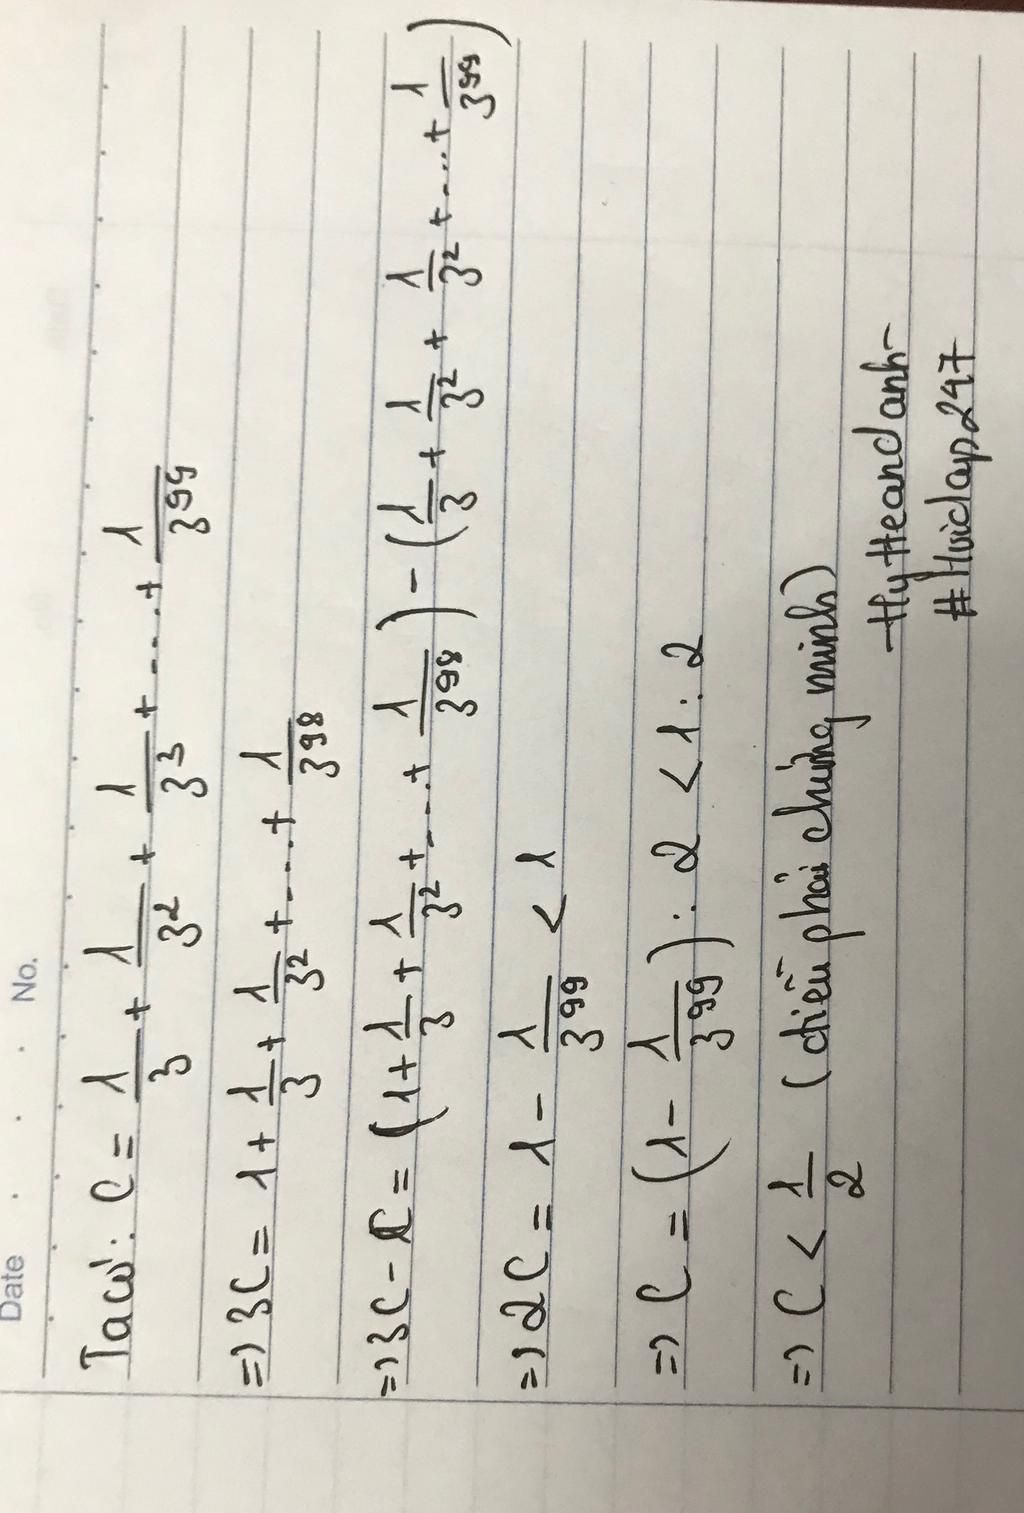 Date . . No.
Ta có: C = 1/3 + 1/3² + 1/3³ + .... + 1/3⁹⁹
=> 3C = 1 + 1/3 + 1/3² + .... + 1/3⁹⁸
=> 3C - C = (1 + 1/3 + 1/3² + .... + 1/3⁹⁸) - (1/3 + 1/3² + 1/3² + .... + 1/3⁹⁹)
=> 2C = 1 - 1/3⁹⁹ < 1
=> C = (1 - 1/3⁹⁹) : 2 < 1 : 2
=> C < 1/2 (điều phải chứng minh)
#Hoidap247